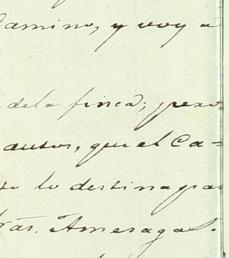 Camino, y voy a
de la finca; pero
autos, que el Ca=
lo destina pa
Amesaga.